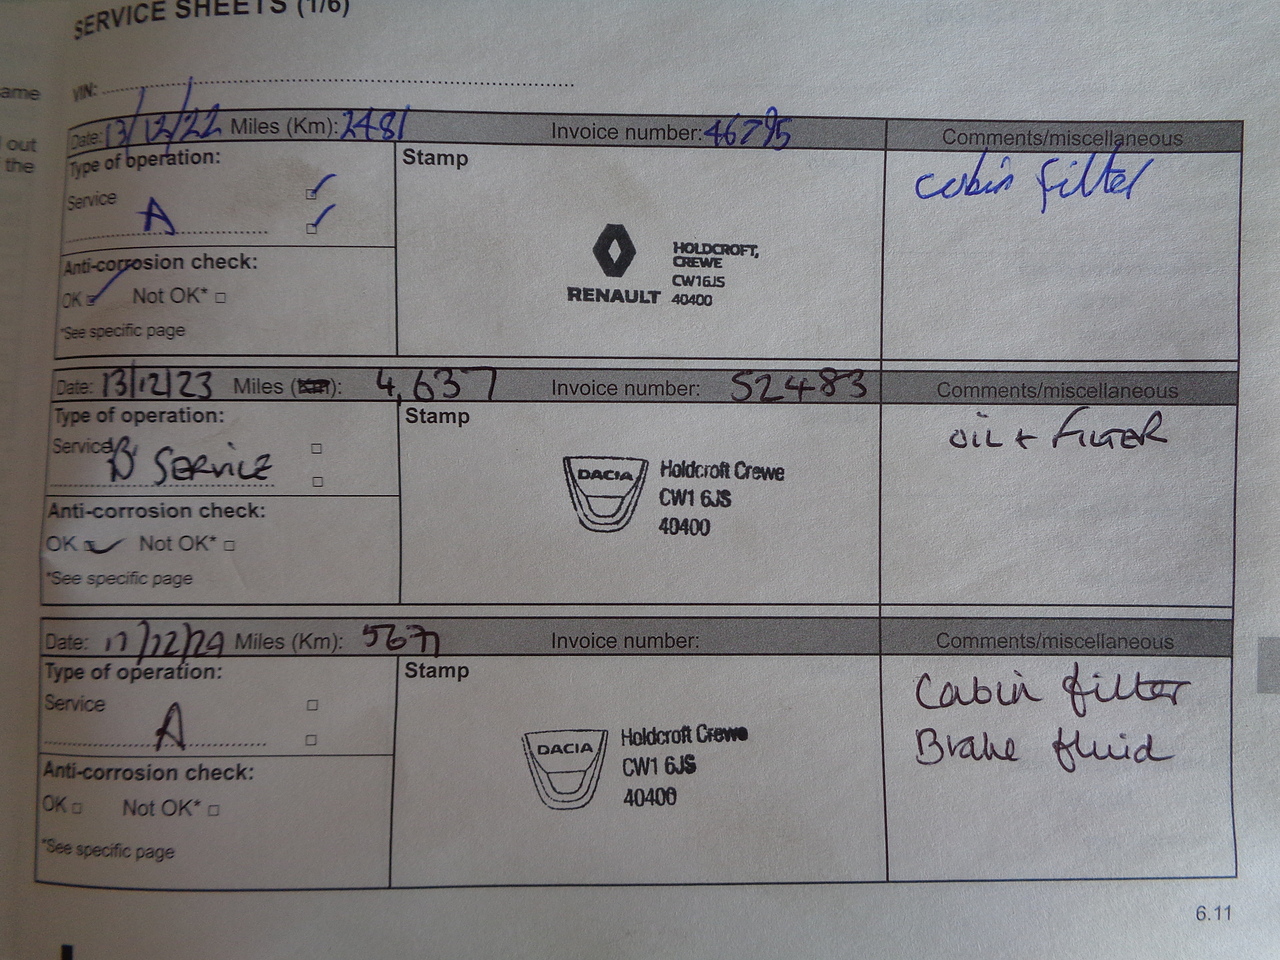 SERVICE SHEETS (1/6)
ame
out
the
VIN:
Date: 13/12/22 Miles (Km): 2481 Invoice number: 46795 Comments/miscellaneous
Type of operation:
Stamp
cabin filter
Service
A
Anti-corrosion check:
OK Not OK*
*See specific page
RENAULT
HOLDCROFT,
CREWE
CW16JS
40400
Date: 13/12/23 Miles (Km): 4,637 Invoice number: 52483 Comments/miscellaneous
Type of operation:
Stamp
OIL + FILTER
Service
B SERVICE
Anti-corrosion check:
OK Not OK*
*See specific page
DACIA
Holdcroft Crewe
CW1 6JS
40400
Date: Miles (Km): Invoice number: Comments/miscellaneous
Type of operation:
Stamp
Cabin filter
Brake fluid
Service
A
Anti-corrosion check:
OK Not OK*
*See specific page
DACIA
Holdcroft Crewe
CW1 6JS
40400
6.11